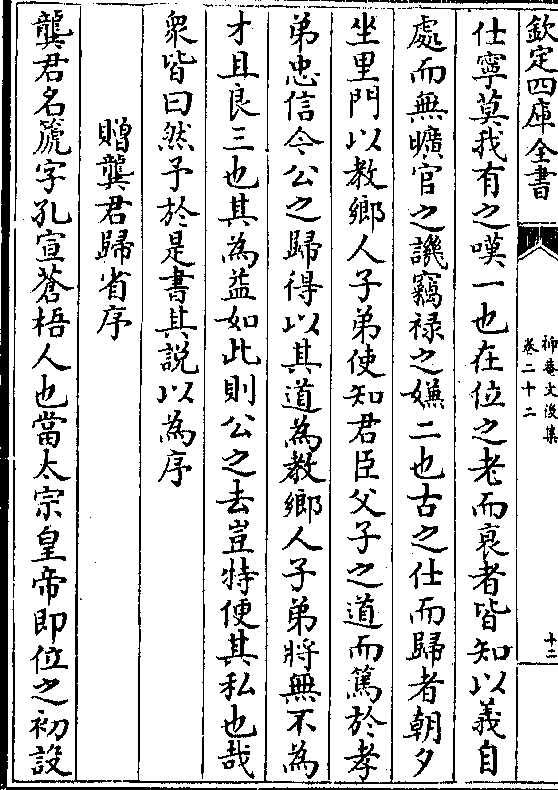 欽定四庫全書
抑菴文後集
卷二十二
十二
仕寧莫我有之嘆一也在位之老而衰者皆知以義自
處而無曠官之譏竊祿之嫌二也古之仕而歸者朝夕
坐里門以教鄉人子弟使知君臣父子之道而篤於孝
弟忠信今公之歸得以其道為教鄉人子弟將無不為
才且良三也其為益如此則公之去豈特便其私也哉
衆皆曰然予於是書其說以為序
贈龔君歸省序
龔君名箎字孔宣蒼梧人也當太宗皇帝即位之初設